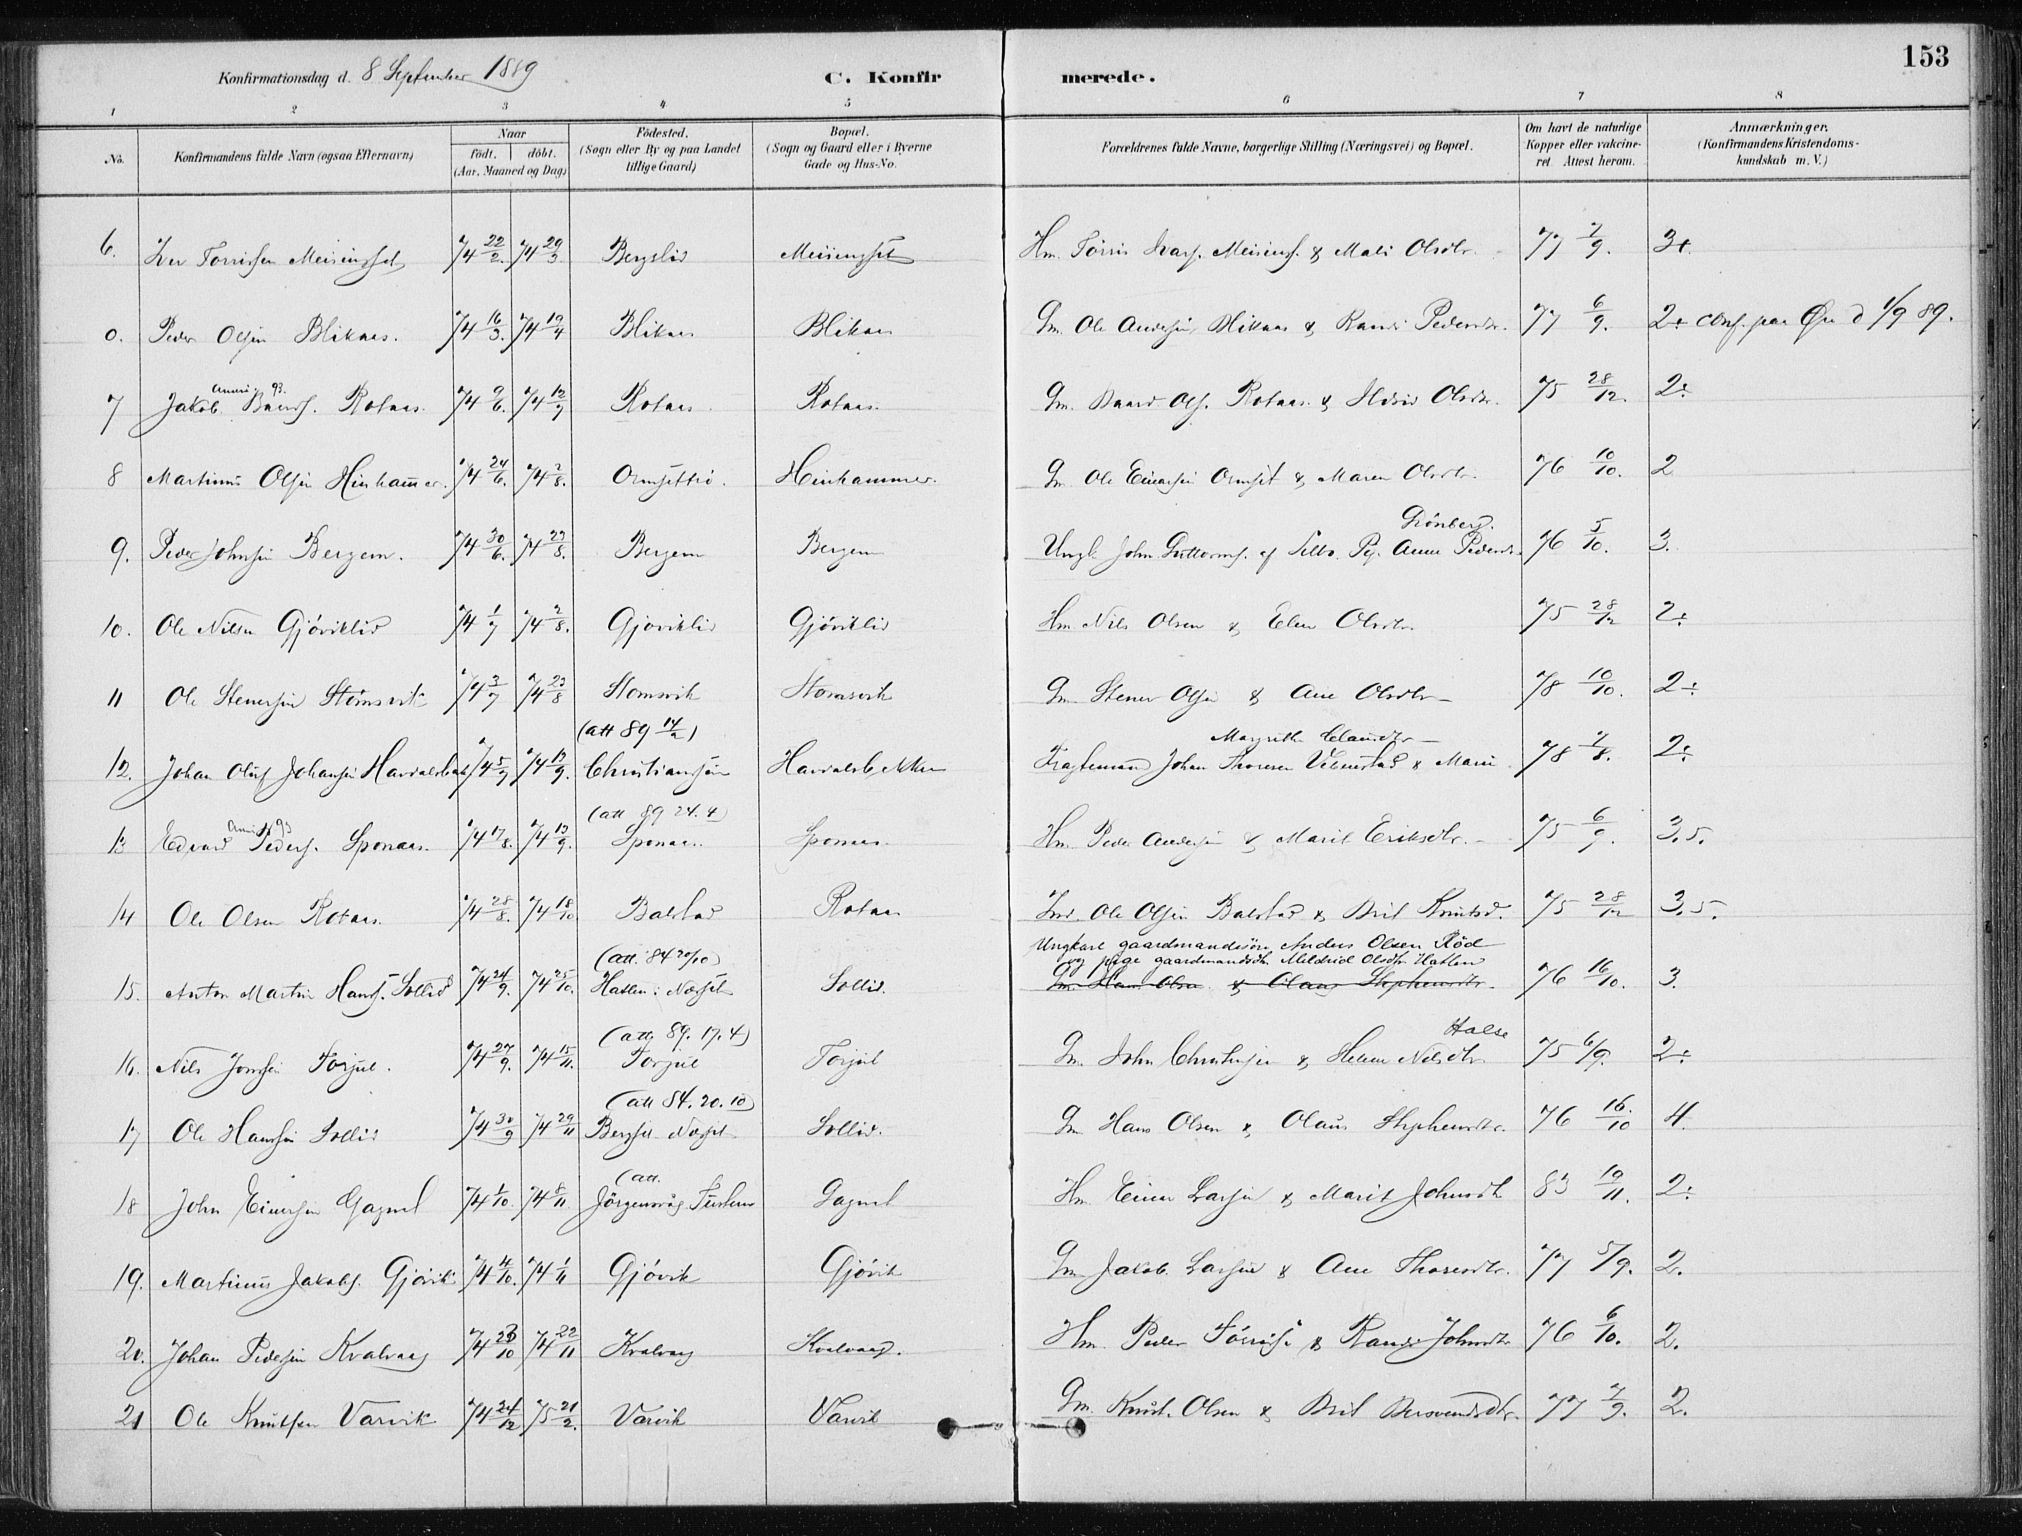 153
Konfirmationsdag d. 8 September 1889 C. Konfir merede.
1 2 3 4 5 6 7 8
No. Konfirmandens fulde Navn (ogsaa Efternavn) Naar født. døbt. (Aar, Maaned og Dag) Fødested. (Sogn eller By og paa Landet tillige Gaard) Bopæl. (Sogn og Gaard eller i Byerne Gade og Hus-No. Forældrenes fulde Navne, borgerlige Stilling (Næringsvei) og Bopæl. Om havt de naturlige Kopper eller vakcineret. Attest herom. Anmærkninger. (Konfirmandens Kristendomskundskab m. V.)
6. Iver Torrissen Meisingset 74 22/2. 74 29/3 Bergslid Meisingset Hm. Törris Ivars. Meisings. & Mali Olsdtr. 77 7/9. 3+.
0. Peder Olsen Blikaas. 74 16/3. 74 19/4 Blikaas Blikaas Gm. Ole Andersen Blikaas & Randi Pedersdtr. 77 6/9. 2÷ conf. paa Øre d 1/9 89.
93.
7 Jakob Baards. Rotaas. 74 9/6. 74 12/7 Rotaas Rotaas. Gm. Baard Ols. Rotaas & Ildrid Olsdtr. 75 28/12. 2÷
8 Martinus Olsen Heinhammer. 74 24/6. 74 2/8. Ormsettrö. Heinhammer. Gm Ole Einarsen Ormset & Maren Olsdtr. 76 10/10. 2
Grönberg.
9. Peder Johnsen Bergem. 74 30/6. 74 23/8. Bergem Bergem Ungk. John Guttorms. af Selbo. Pig. Anne Pedersdr. 76 5/10. 3.
10. Ole Nilsen Gjöviklid 74 1/7 74 2/8. Gjöviklid Gjöviklid Hm. Nils Olsen & Elen Olsdtr. 75 28/12 2÷
11 Ole Stenersen Stömsvik 74 3/7 74 23/8 Stomsvik Stomsvik Gm Stener Olsen & Ane Olsdtr 78 10/10. 2÷
(att 89 14/2) Margrethe Clausdtr
12. Johan Oluf Johansen Havdalsbak 74 5/9 74 13/9. Christiansund Havdalsbekken Fragtemand Johan Thoresen & Marie 78 7/8. 2÷
93 (att 89 24.4)
13 Edvard Peders. Sponaas. 74 17/8. 74 13/9. Sponaas. Sponaas. Hm. Peder Andersen & Marit Eriksdtr. 75 6/9. 3.5.
14 Ole Olsen Rotaas. 74 28/8. 74 18/10 Balstad Rotaas Ind. Ole Olsen Balstad & Brit Knutsd. 75 28/12 3.5.
(att. 84 20/10) Ungkarl gaardmandssön Anders Olsen Röd
og pige gaardmandsdtr. Mildrid Olsdtr Hatlen
15. Anton Martin Hans. Sollid 74 24/9. 74 25/10. Hatlen i Næsset Sollid. Gm. Hans Olsen & Olaug Stephensdtr. 76 16/10. 3.
(att 89. 17.4) Halse
16. Nils Jonsen Torjul. 74 27/9. 74 15/11. Torjul Torjul Gm. John Christensen & Helene Nilsdtr 75 6/9. 2÷
(att 84. 20. 10)
17 Ole Hansen Sollid 74 30/9 74 29/11 Bergset Næsset Sollid. Gm Hans Olsen & Olaug Stephensdtr. 76 16/10 4.
(att.
18 John Einarsen Gagnat 74 1/10. 74 8/11 Jörgensvåg Tustern Gagnat Hm. Einar Larsen & Marit Johnsdtr 83 19/11. 2÷
19. Martinus Jakobs. Gjövik 74 4/10. 74 1/11 Gjövik Gjövik Gm Jakob Larsen & Ane Thoresdtr. 77 5/9. 2.
20. Johan Pedersen Kvalvaag 74 23/10 74 22/11 Kvalvaag Kvalvaag. Hm. Peder Törrisse & Randi Johnsdtr 76 6/10. 2.
21 Ole Knutsen Varvik 74 24/12 75 21/2. Varvik Varvik Gm. Knut. Olsen & Brit Bersvendsdtr. 77 7/9. 2.